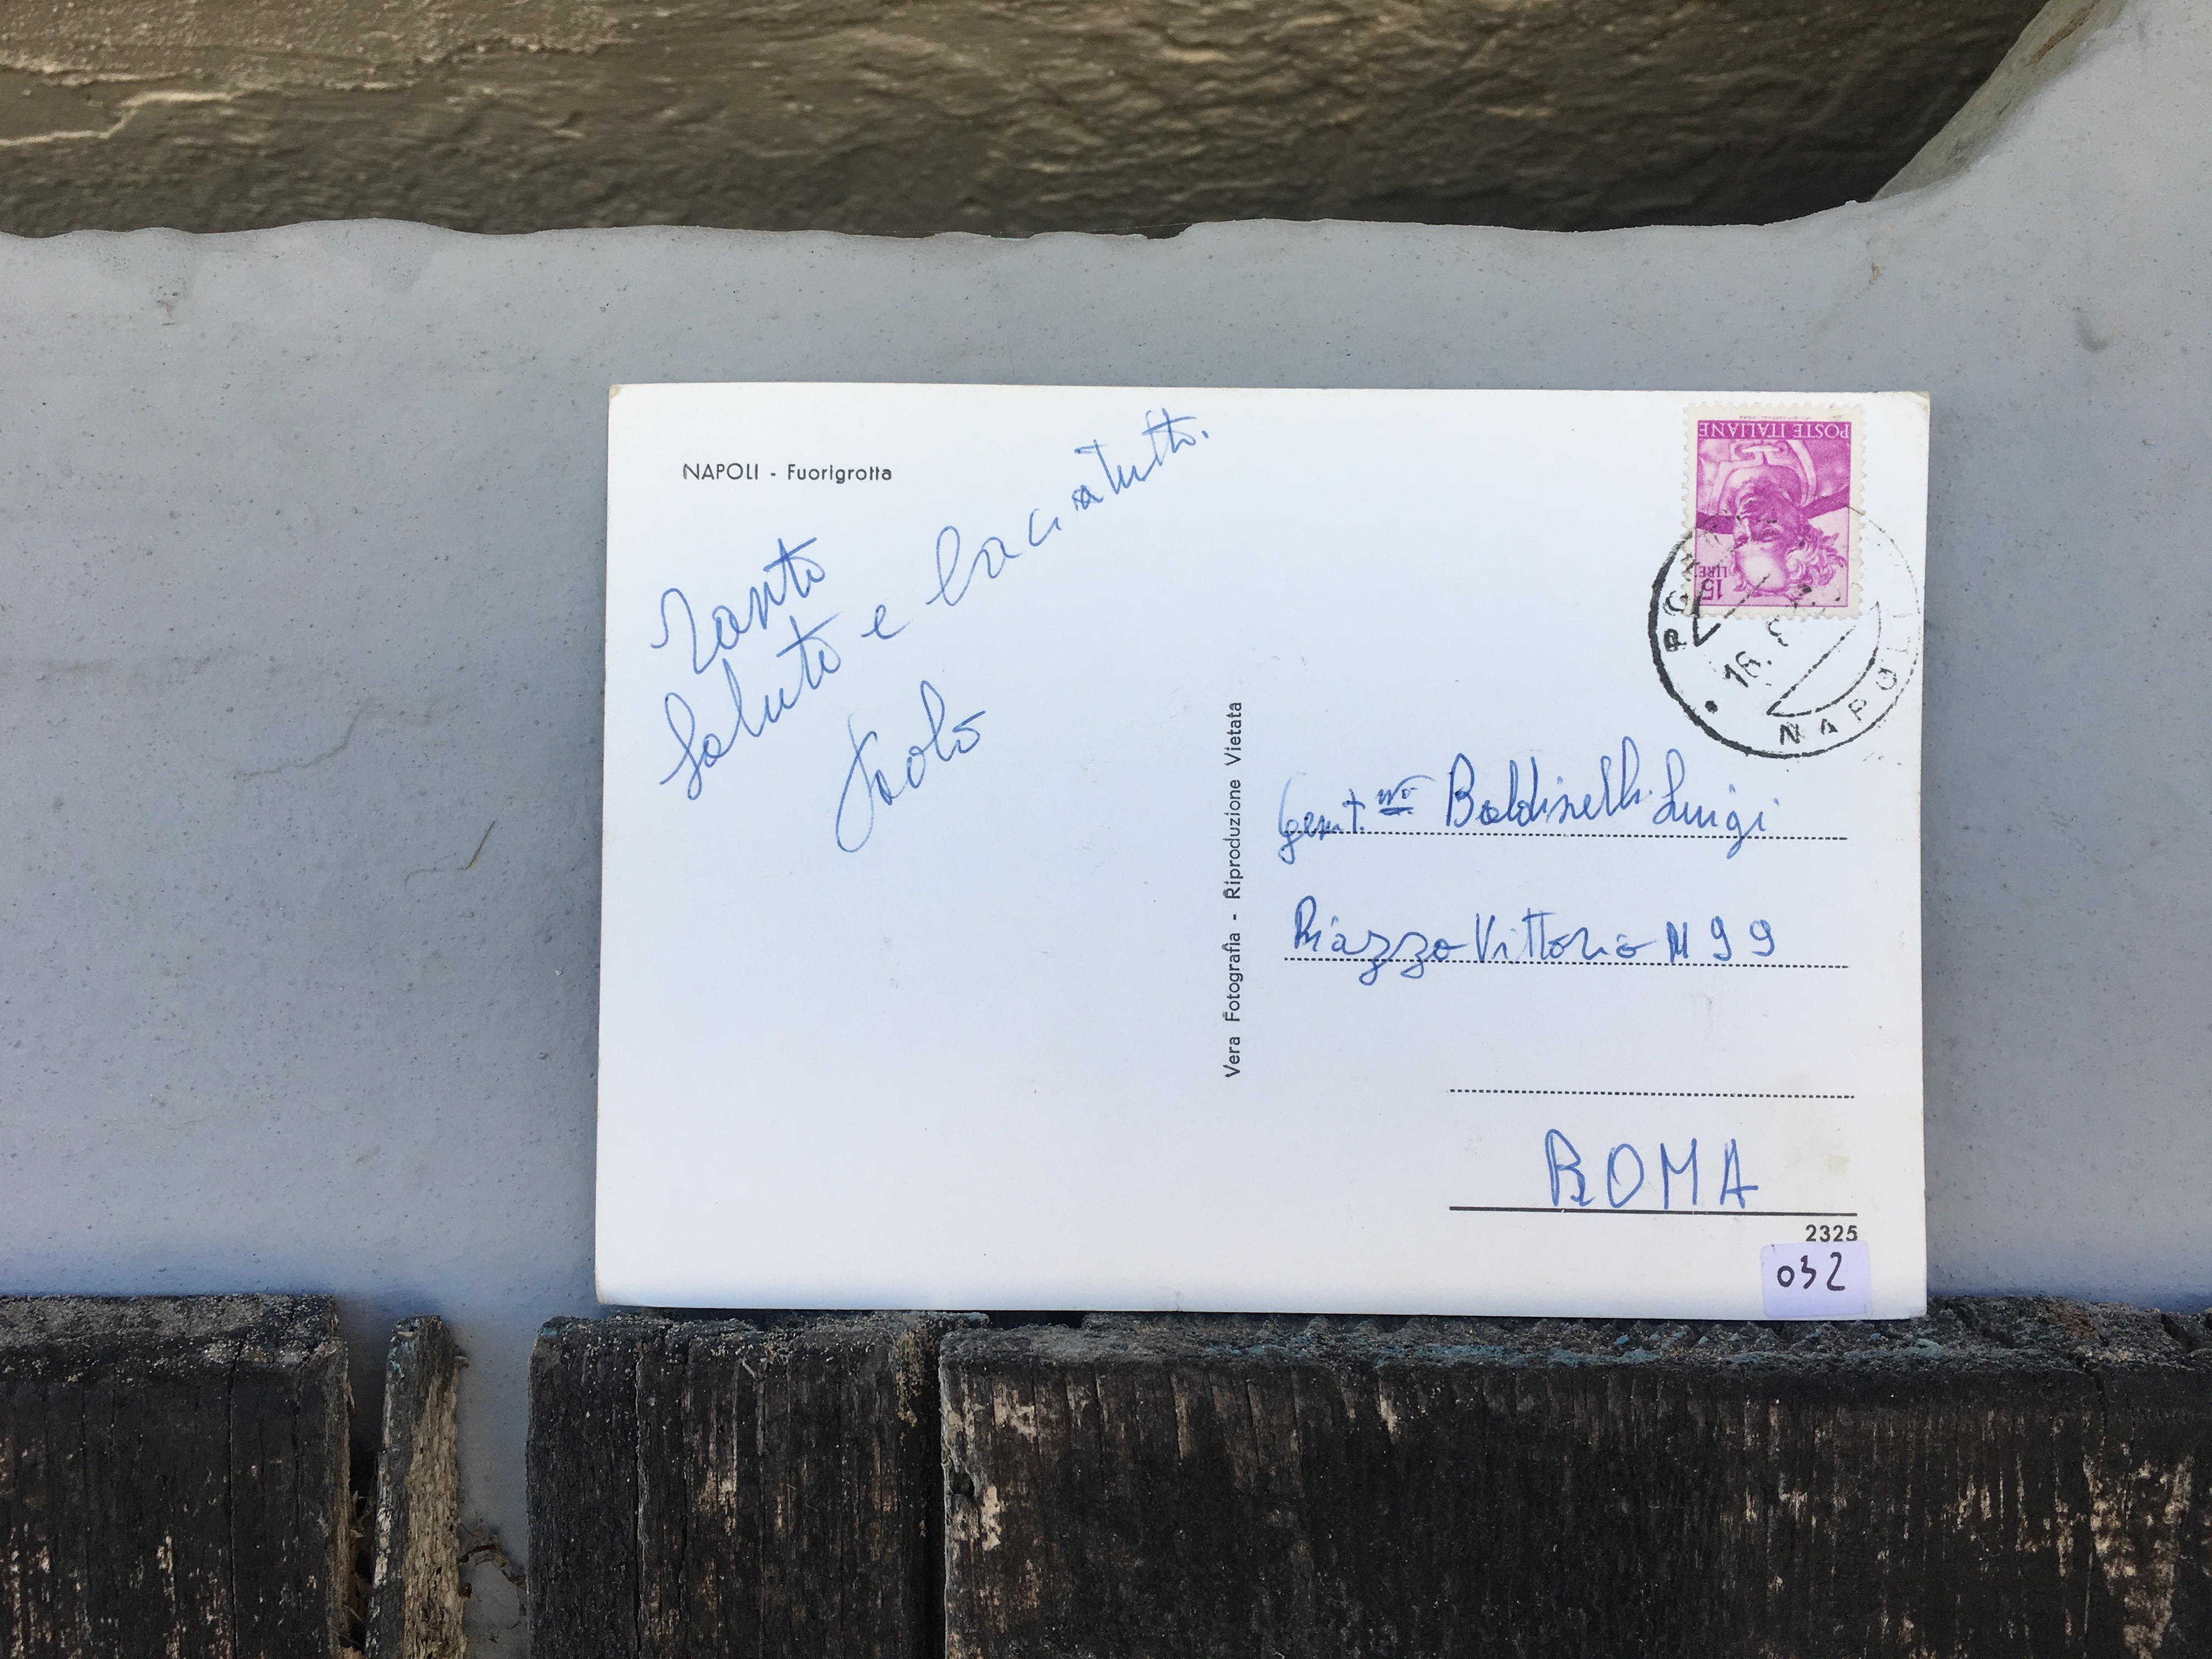 NAPOLI - Fuorigrotta
Tanto
saluto e bacia tutti.
Paolo
Vera Fotografia - Riproduzione Vietata
POSTE ITALIANE
15
LIRE
16.
NAPOLI
Gent.mo Baldinelli Luigi
Piazza Vittorio N 99
ROMA
2325
032